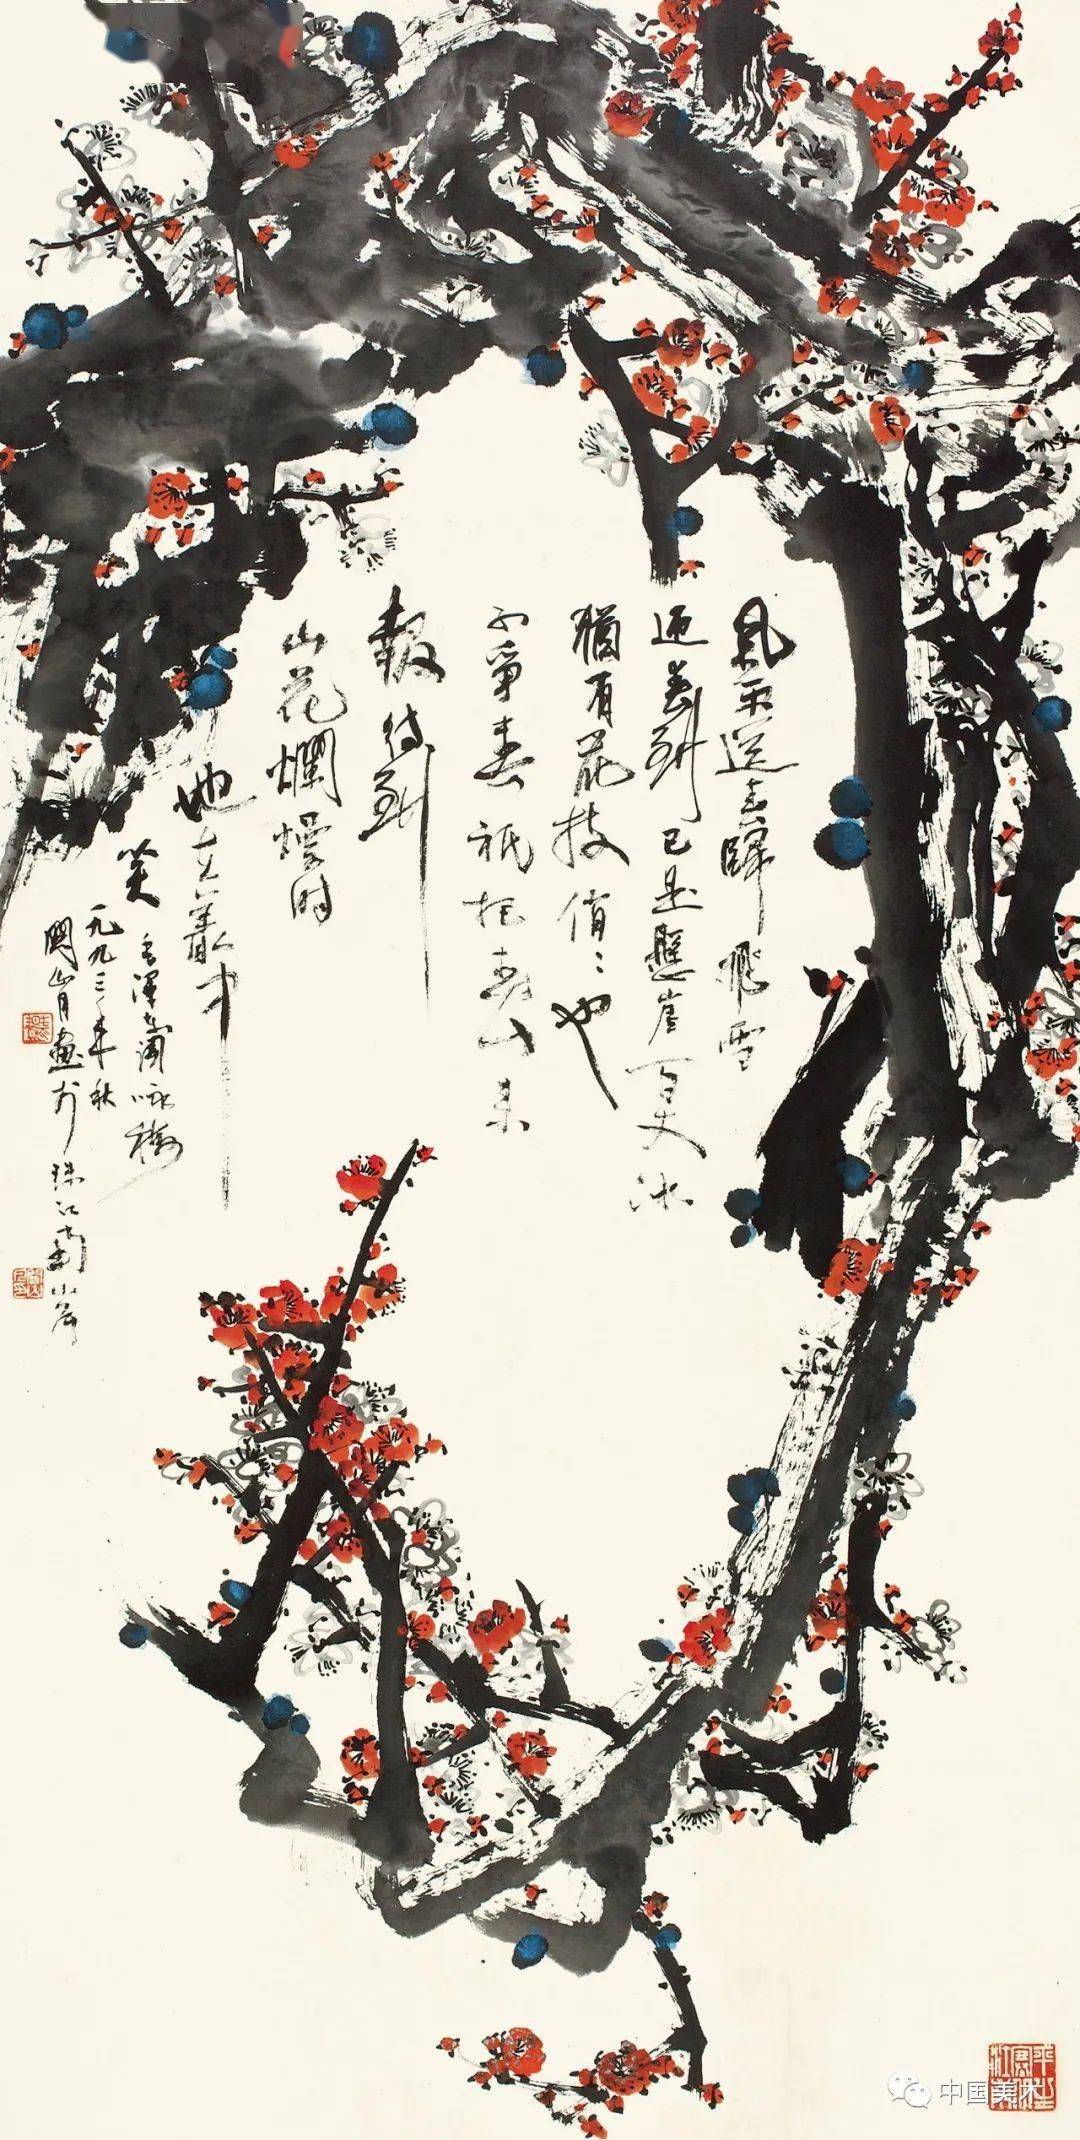 風雨送春歸飛雪
迎春到已是懸崖百丈冰
猶有花枝俏〻也
不爭春祇把春來
報待到
山花爛熳時
她在叢中
笑
毛澤東詞詠梅
一九九三年秋
關山月畫於珠江南
中国美术